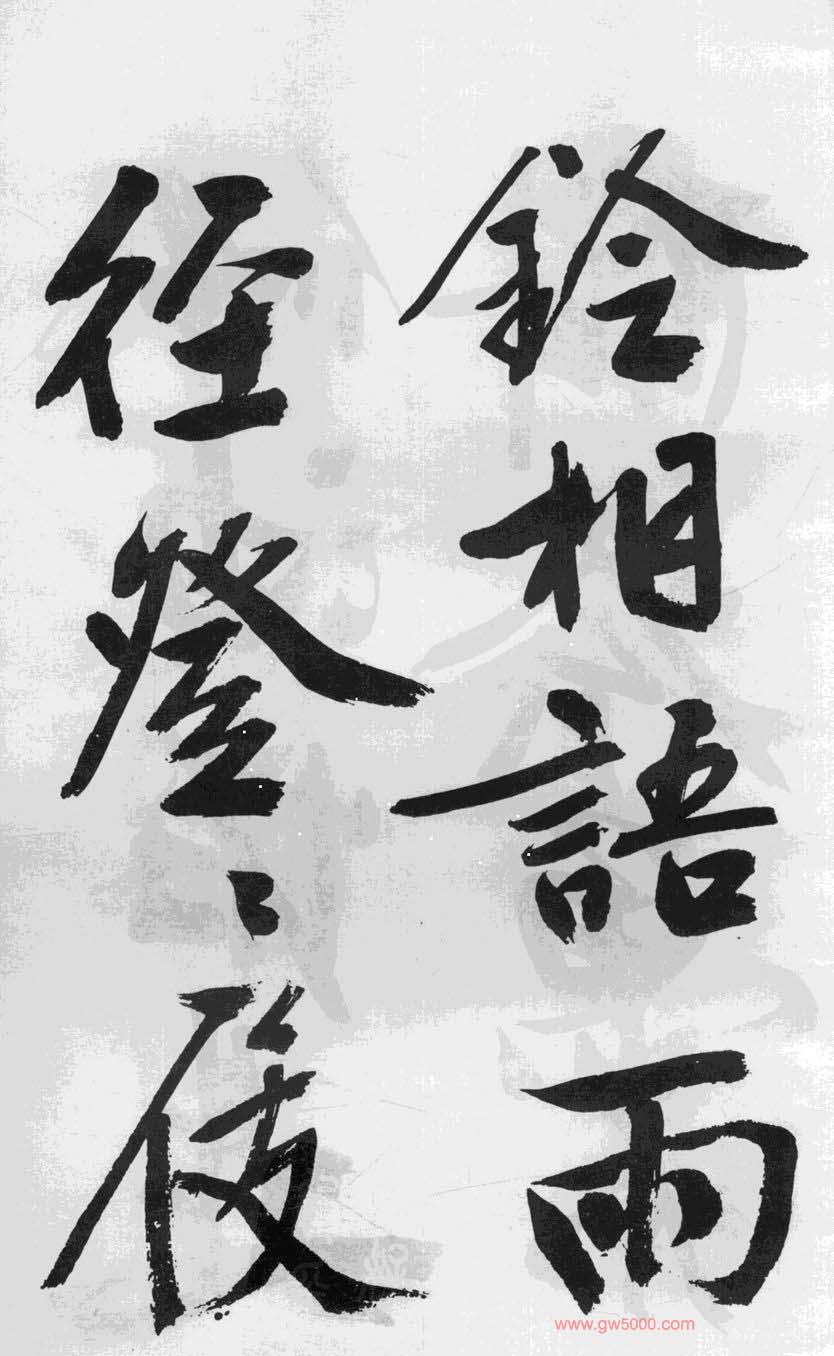 鈴相語雨
徑登〻屐
www.gw5000.com